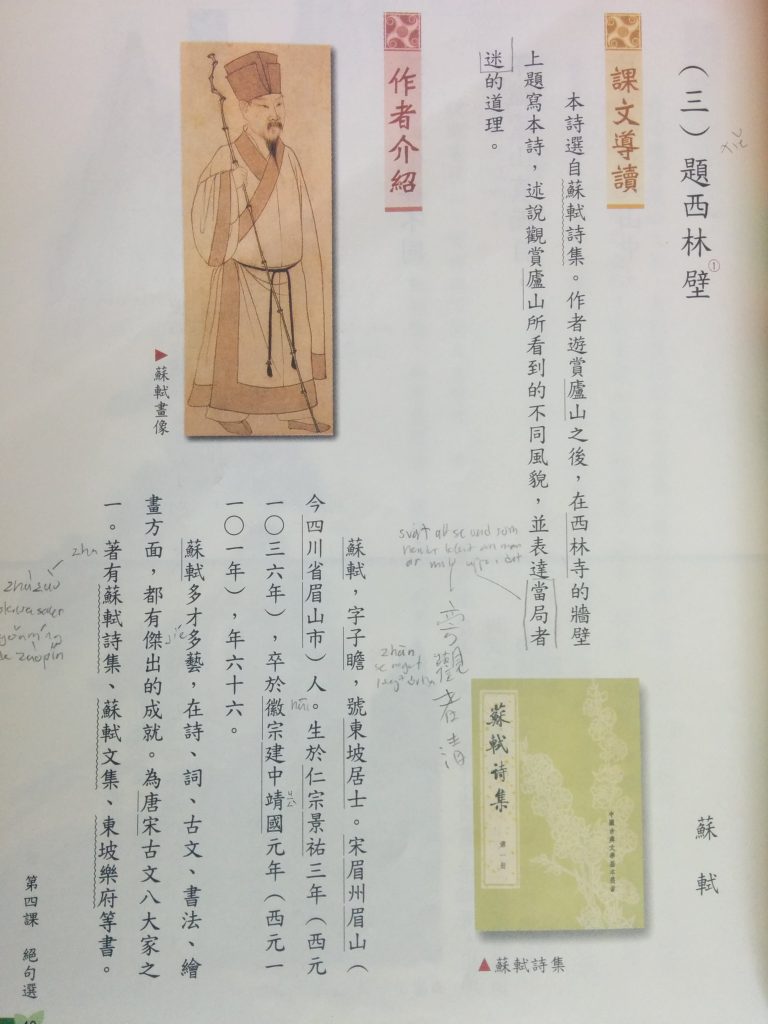 (三)題西林壁①
蘇軾
課文導讀
本詩選自蘇軾詩集。作者遊賞廬山之後，在西林寺的牆壁
上題寫本詩，述說觀賞廬山所看到的不同風貌，並表達當局者
迷的道理。
蘇軾詩集
第一冊
中國古典文學基本叢書
▲蘇軾詩集
觀者清
zhān
作者介紹
▶蘇軾畫像
蘇軾，字子瞻，號東坡居士。宋眉州眉山（
今四川省眉山市）人。生於仁宗景祐三年（西元
一〇三六年），卒於徽宗建中靖國元年（西元一
一〇一年），年六十六。
蘇軾多才多藝，在詩、詞、古文、書法、繪
畫方面，都有傑出的成就。為唐宋古文八大家之
一。著有蘇軾詩集、蘇軾文集、東坡樂府等書。
jié
zhu
第四課　絕句選